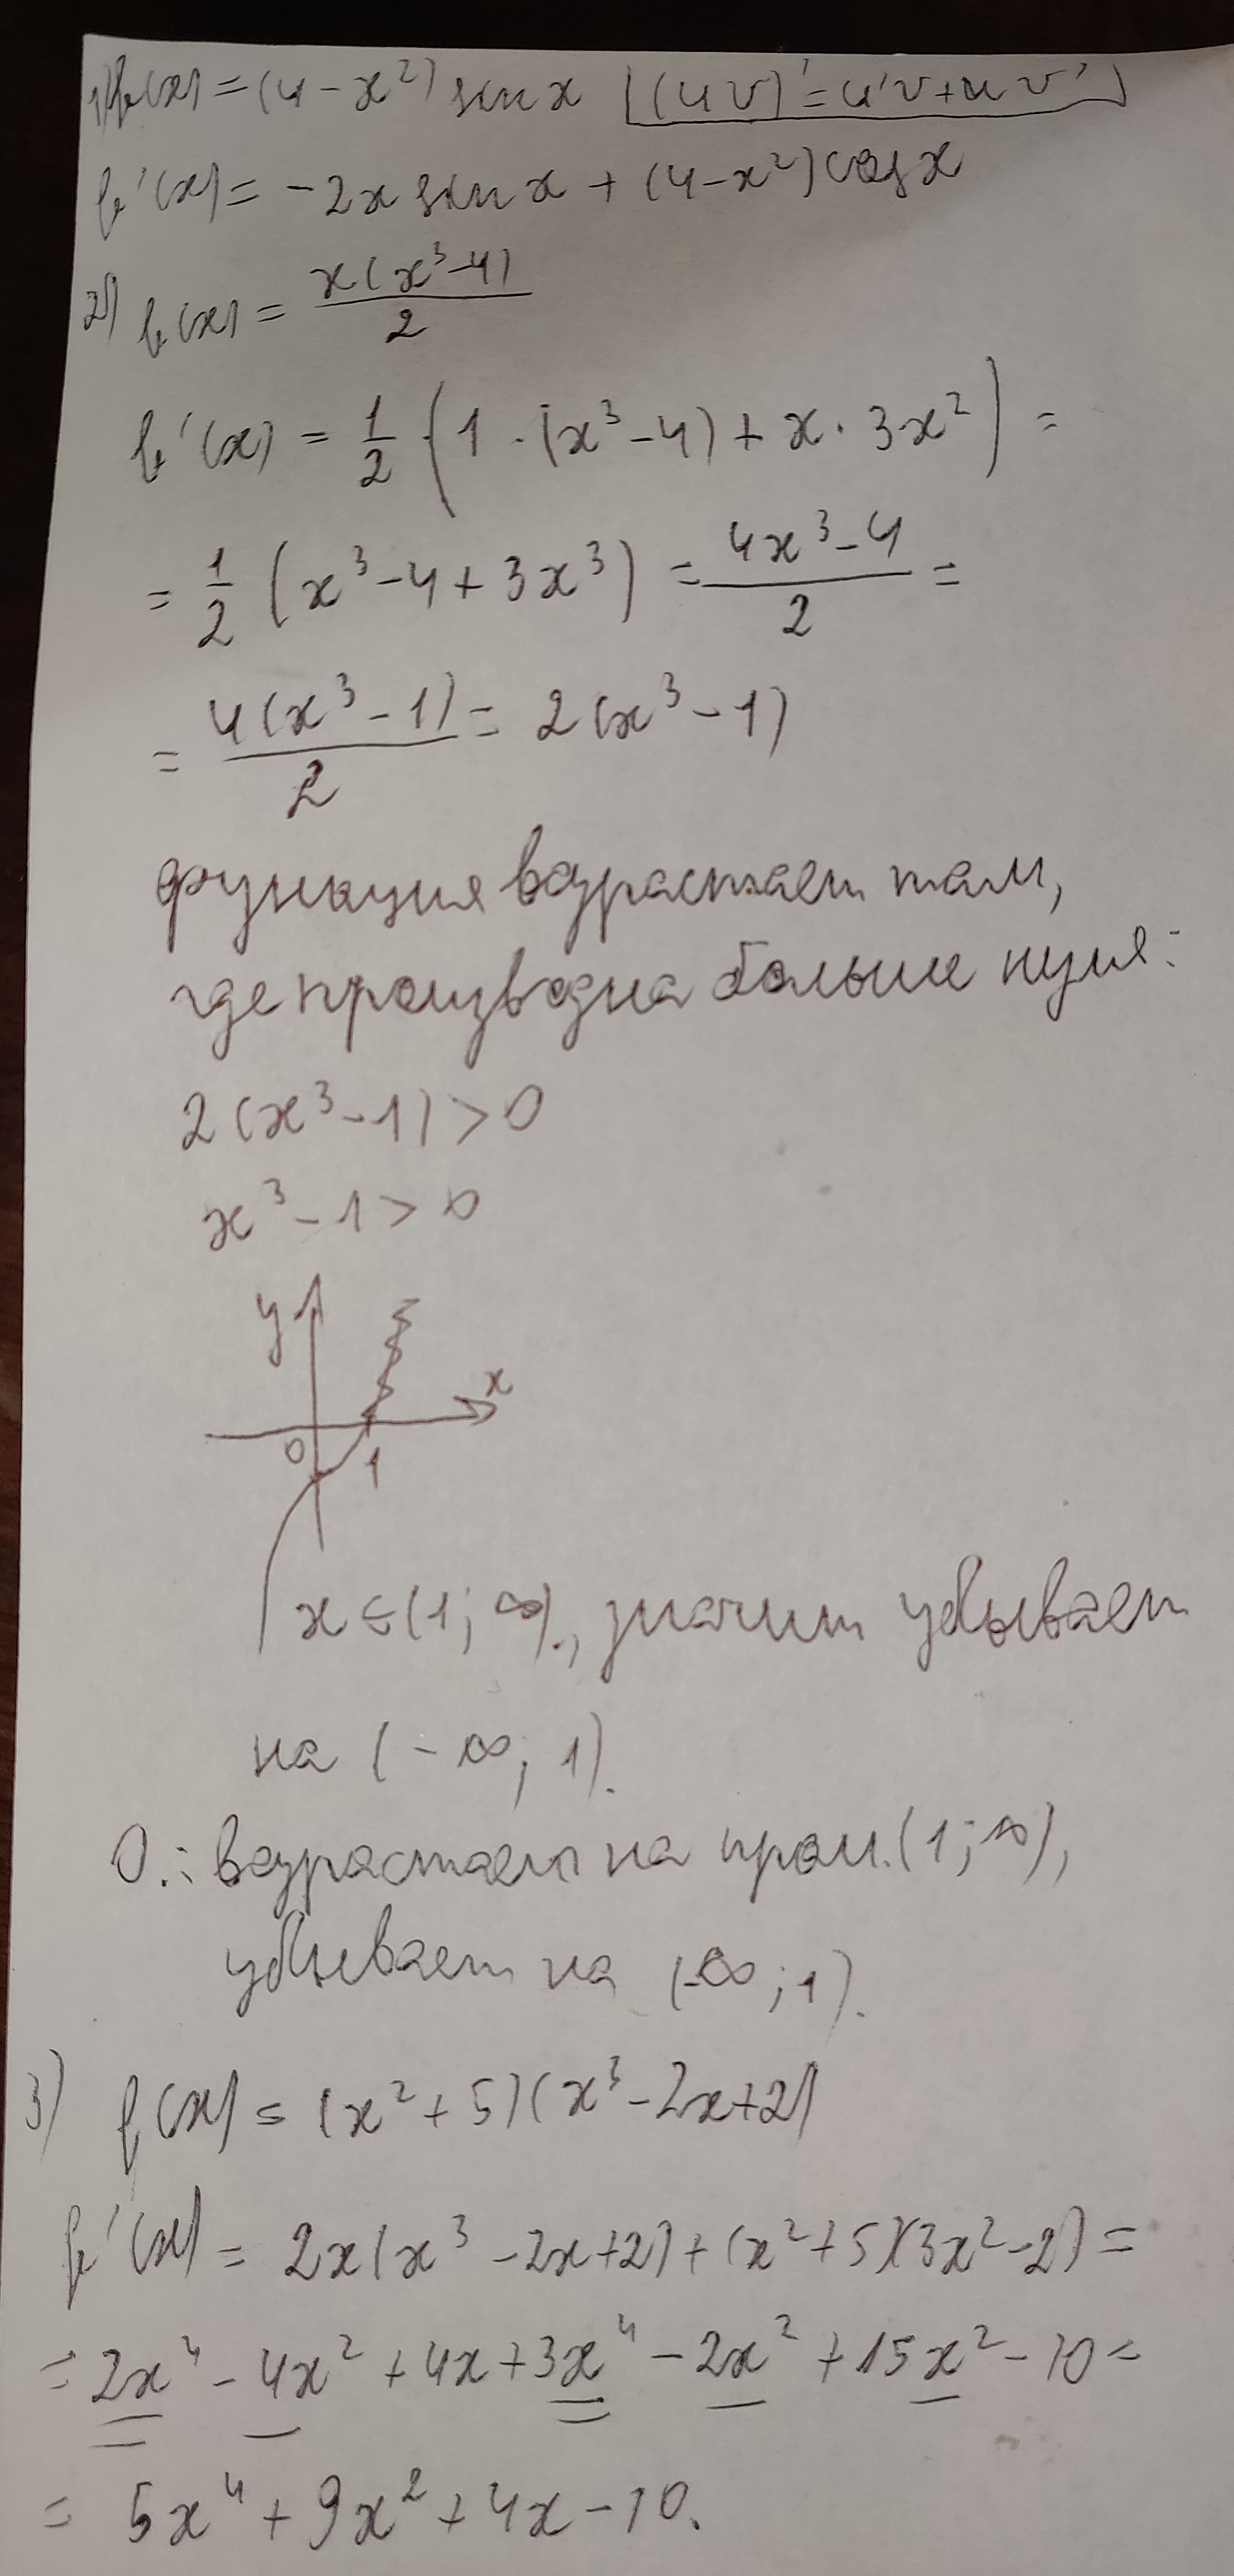 1) f(x) = (4 - x²) sin x [(uv)' = u'v + uv']
f'(x) = -2x sin x + (4 - x²) cos x
2) f(x) = x(x³-4)/2
f'(x) = 1/2 · (1 · (x³ - 4) + x · 3x²) =
= 1/2 (x³ - 4 + 3x³) = (4x³ - 4)/2 =
= 4(x³ - 1)/2 = 2(x³ - 1)
функция возрастает там,
где производна больше нуля:
2(x³ - 1) > 0
x³ - 1 > 0
y
x
0 1
x ∈ (1; ∞)., значит убывает
на (-∞; 1).
О.: возрастает на пром. (1; ∞),
убывает на (-∞; 1).
3) f(x) = (x² + 5)(x³ - 2x + 2)
f'(x) = 2x(x³ - 2x + 2) + (x² + 5)(3x² - 2) =
= 2x⁴ - 4x² + 4x + 3x⁴ - 2x² + 15x² - 10 =
= 5x⁴ + 9x² + 4x - 10.